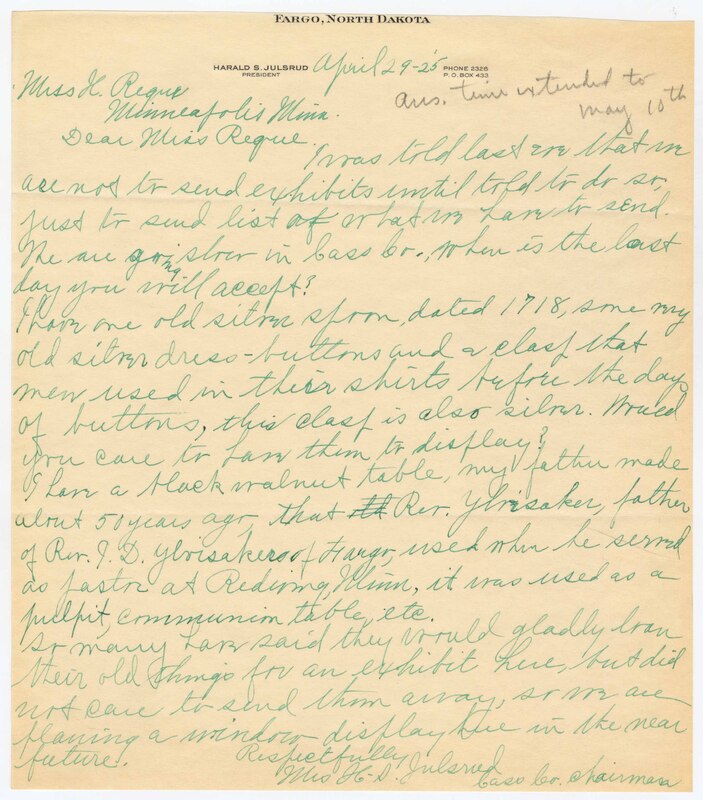 FARGO, NORTH DAKOTA
HARALD S. JULSRUD
PRESIDENT
PHONE 2326
P. O. BOX 433
April 29-25
Ans. time extended to
may 10th
Miss H. Reque
Minneapolis Minn.
Dear Miss Reque.
I was told last eve that we
are not to send exhibits until told to do so,
just to send list of what we have to send.
We are going slow in Cass Co., when is the last
day you will accept?
I have one old silver spoon, dated 1718, some very
old silver dress-buttons and a clasp that
men used in their shirts before the days
of buttons, this clasp is also silver. Would
you care to have them to display?
I have a black walnut table, my father made
about 50 years ago, that Rev. Ylvisaker, father
of Rev. I. D. Ylvisakers of Fargo, used when he served
as pastor at Redwing, Minn, it was used as a
pulpit, communion table, etc.
So many have said they would gladly loan
their old things for an exhibit here, but did
not care to send them away, so we are
planing a window display here in the near
future.
Respectfully
Mrs H. S. Julsrud
Cass Co. chairman